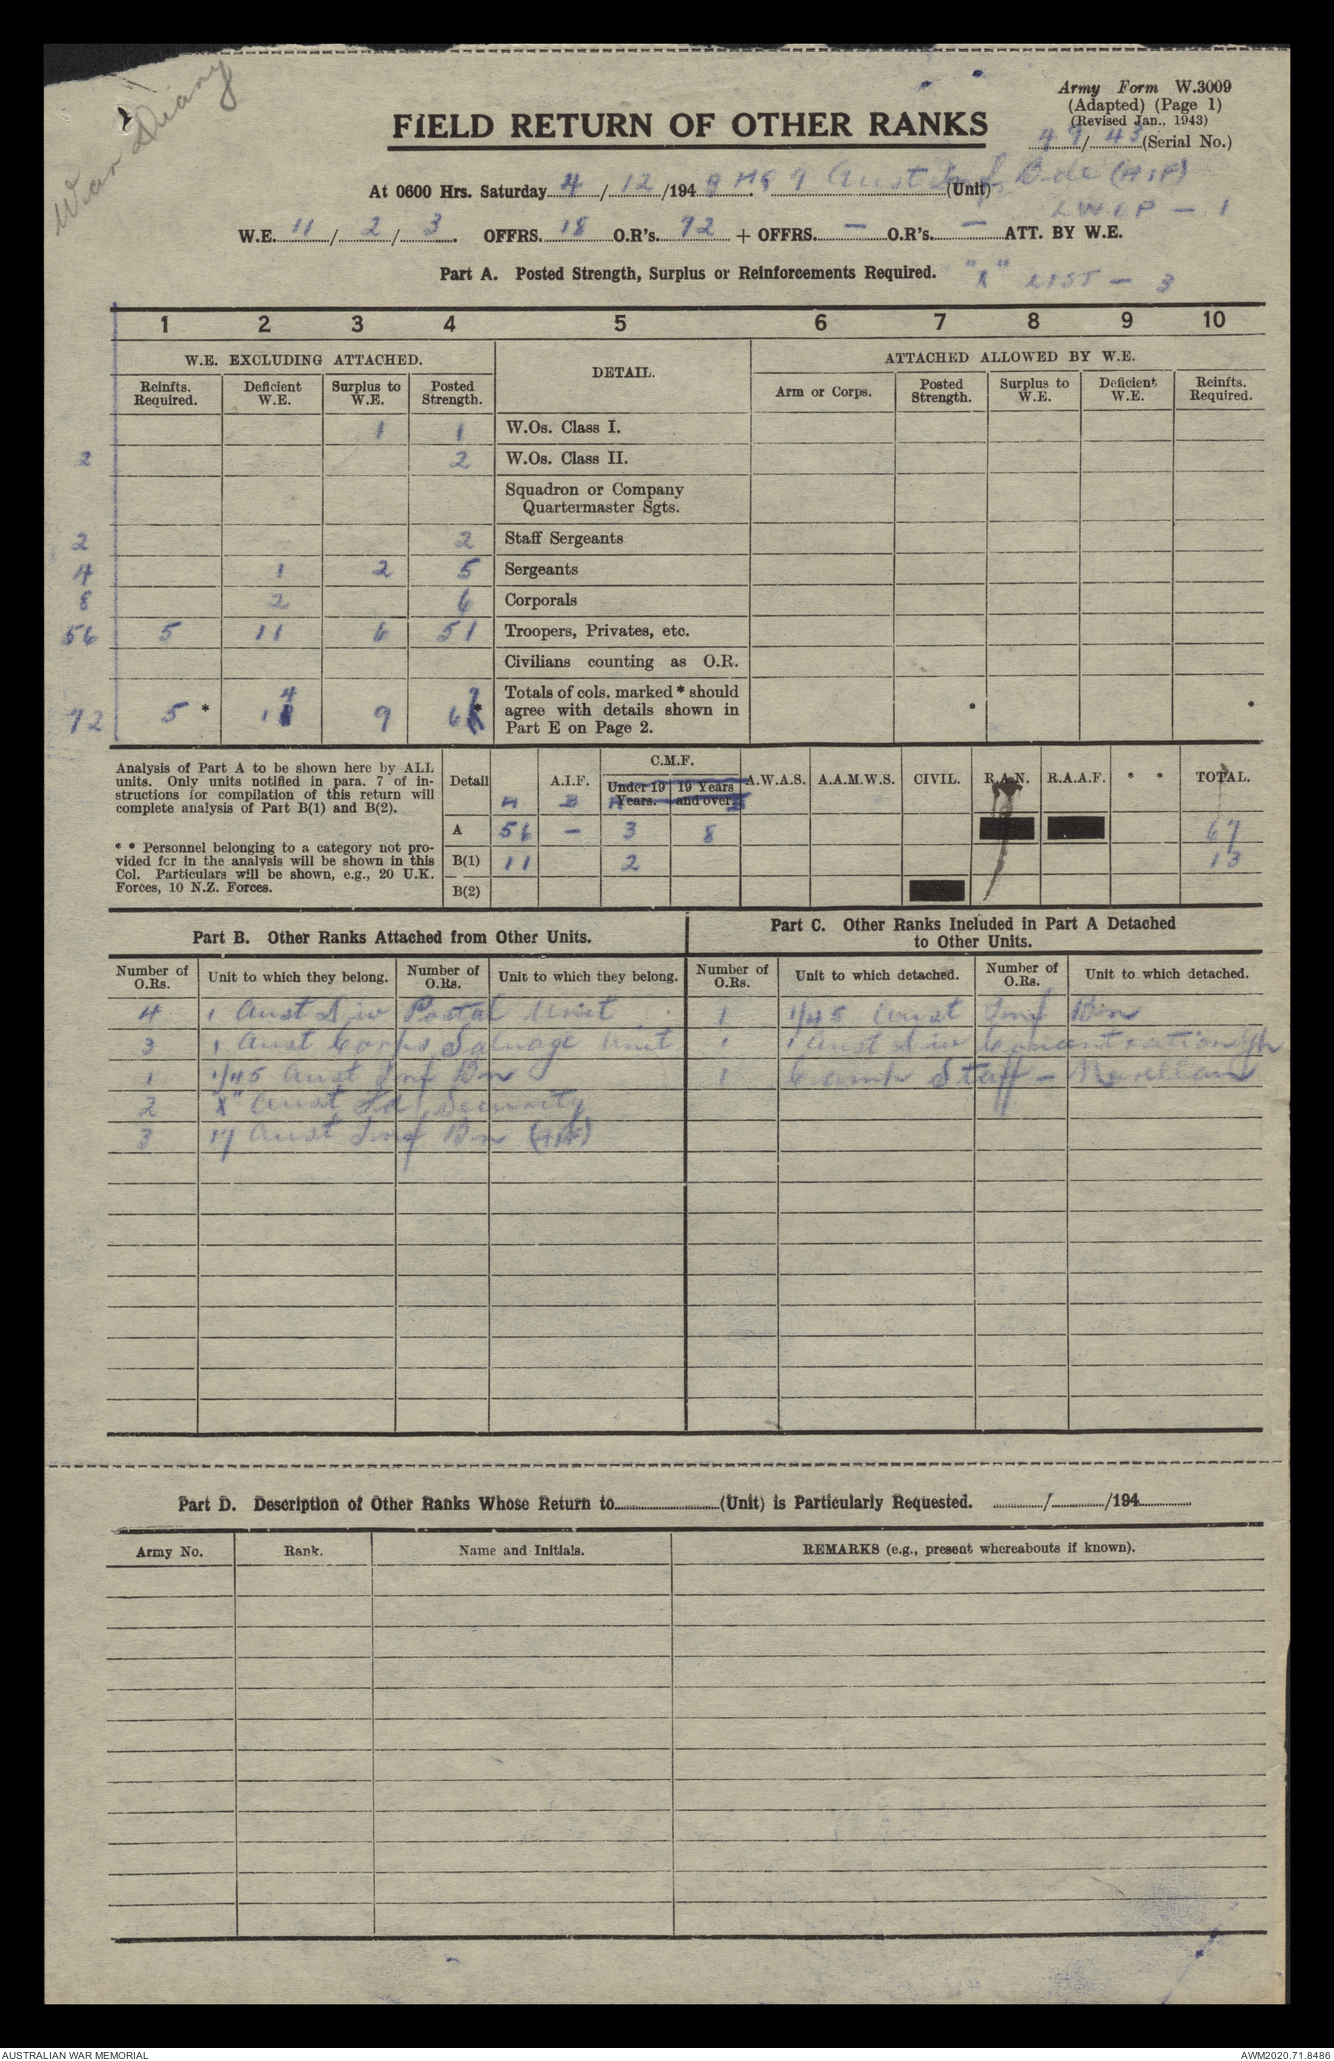 War Diary
Army Form W.3009
(Adapted) (Page 1)
(Revised Jan., 1943)
49/43 (Serial No.)
FIELD RETURN OF OTHER RANKS
At 0600 Hrs. Saturday 4/12/1943 HQ 9 Aust Inf Bde (AIF) (Unit)
LWOP - 1
W.E. 11/2/3. OFFRS. 18 O.R's. 72 + OFFRS. - O.R's. - ATT. BY W.E.
Part A. Posted Strength, Surplus or Reinforcements Required.
"X" LIST - 3
1 2 3 4 5 6 7 8 9 10
W.E. EXCLUDING ATTACHED. DETAIL. ATTACHED ALLOWED BY W.E.
Reinfts. Required. Deficient W.E. Surplus to W.E. Posted Strength. Arm or Corps. Posted Strength. Surplus to W.E. Deficient W.E. Reinfts. Required.
1 1 W.Os. Class I.
2 2 W.Os. Class II.
Squadron or Company
Quartermaster Sgts.
2 2 Staff Sergeants
4 1 2 5 Sergeants
8 2 6 Corporals
56 5 11 6 51 Troopers, Privates, etc.
Civilians counting as O.R.
72 5 * 14 9 67 * Totals of cols. marked * should
agree with details shown in
Part E on Page 2.
* *
Analysis of Part A to be shown here by ALL
units. Only units notified in para. 7 of in-
structions for compilation of this return will
complete analysis of Part B(1) and B(2).
* * Personnel belonging to a category not pro-
vided for in the analysis will be shown in this
Col. Particulars will be shown, e.g., 20 U.K.
Forces, 10 N.Z. Forces.
Detail A.I.F. C.M.F. A.W.A.S. A.A.M.W.S. CIVIL. R.A.N. R.A.A.F. * * TOTAL.
Under 19 Years. 19 Years and over.
A B A B
A 56 - 3 8 67
B(1) 11 2 13
B(2)
Part B. Other Ranks Attached from Other Units.
Part C. Other Ranks Included in Part A Detached
to Other Units.
Number of O.Rs. Unit to which they belong. Number of O.Rs. Unit to which they belong. Number of O.Rs. Unit to which detached. Number of O.Rs. Unit to which detached.
4 1 Aust Div Postal Unit 1 1/45 Aust Inf Bn
3 1 Aust Corps Salvage Unit 1 1 Aust Div Concentration
1 1/45 Aust Inf Bn 1 Camp Staff -
2 "X" Aust Fd Security
3 17 Aust Inf Bn (AIF)
Part D. Description of Other Ranks Whose Return to (Unit) is Particularly Requested. / /194
Army No. Rank. Name and Initials. REMARKS (e.g., present whereabouts if known).
AUSTRALIAN WAR MEMORIAL AWM2020.71.8486